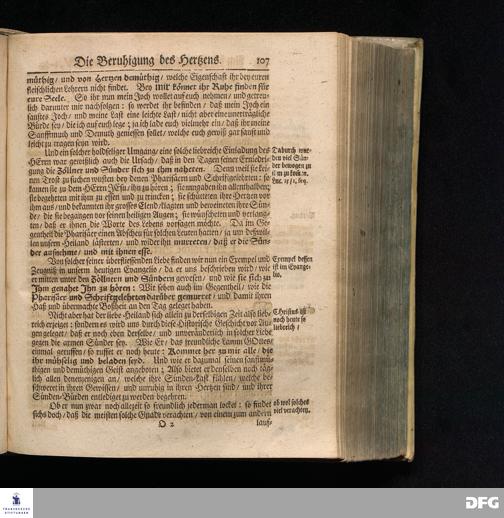 Die Beruhigung des Hertzens. 107
müthig / und von Hertzen demüthig / welche Eigenschafft ihr bey euren
fleischlichen Lehrern nicht findet. Bey mir könnet ihr Ruhe finden für
eure Seele. So ihr nun mein Joch wollet auf euch nehmen / und getreu-
lich darunter mir nachfolgen: so werdet ihr befinden / daß mein Joch ein
sanftes Joch / und meine Last eine leichte Last / nicht aber eine unerträgliche
Bürde sey / die ich auf euch lege; ja ich lade euch vielmehr ein / daß ihr meine
Sanfftmuth und Demuth geniessen sollet / welche euch gewiß gar sanft und
leicht zu tragen seyn wird.
Und ein solcher holdseliger Umgang / eine solche liebreiche Einladung des
HErrn war gewißlich auch die Ursach / daß in den Tagen seiner Erniedri-
gung die Zöllner und Sünder sich zu ihm naheten. Denn weil sie kei-
nen Trost zu suchen wusten bey denen Pharisäern und Schrifftgelehrten: so
kamen sie zu dem HErrn JEsu / ihn zu hören; sie
begegneten mit ihm zu essen und zu trincken; sie schütteten ihre Hertzen vor
ihm aus / und bekannten ihr grosses Elend / klagten und beweineten ihre Sün-
de / die sie begangen vor seinen heiligen Augen; sie wünscheten und verlang-
ten / daß er ihnen die Worte des Lebens vorsagen möchte. Da im Ge-
gentheil die Pharisäer einen Abscheu für solchen Leuten hatten / ja um deßwil-
len unsern Heiland lästerten / und wider ihn murreten / daß er die Sün-
der aufnehme / und mit ihnen esse.
Von solcher seiner überfliessenden Liebe finden wir nun ein Exempel und
Zeugniß in unserm heutigen Evangelio / da er uns beschrieben wird / wie
er mitten unter den Zöllnern und Sündern gewesen / und wie sie sich zu
Ihm genahet Ihn zu hören: Wir sehen auch im Gegentheil / wie die
Pharisäer und Schrifftgelehrten darüber gemurret / und damit ihren
Haß und übermachte Bosheit an den Tag geleget haben.
Nicht aber hat der liebe Heiland sich allein zu derselbigen Zeit also lieb-
reich erzeiget: sondern es wird uns durch diese Historische Geschicht vor Au-
gen geleget / daß er noch eben derselbe / und unveränderlich in solcher Liebe
gegen die armen Sünder sey. Wie Er / das freundliche Lamm GOttes
einmal geruffen / so ruffet er noch heute: Kommet her zu mir alle / die
ihr mühselig und beladen seyd. Und wie er dazumal seinen sanftmü-
thigen und demüthigen Geist angeboten; Also bietet er denselben noch täg-
lich allen denenjenigen an / welche ihre Sünden-Last fühlen / welche be-
schweret in ihren Gewissen / und unruhig in ihren Hertzen sind / und ihrer
Sünden-Bürden entlediget zu werden begehren.
Ob er nun zwar noch allezeit so freundlich jederman locket: so findet
sichs doch / daß die meisten solche Gnade verachten / von einem zum andern
O 2 lauf-
Dadurch wur-
den viel Sün-
der bewogen zu
ihm zu kommen.
Luc. 15 / 1. seq.
Exempel dessen
ist im Evange-
lio.
Christus ist
noch heute so
liebreich /
ob wol solches
viel verachten.
FRANCKESCHE
STIFTUNGEN
DFG